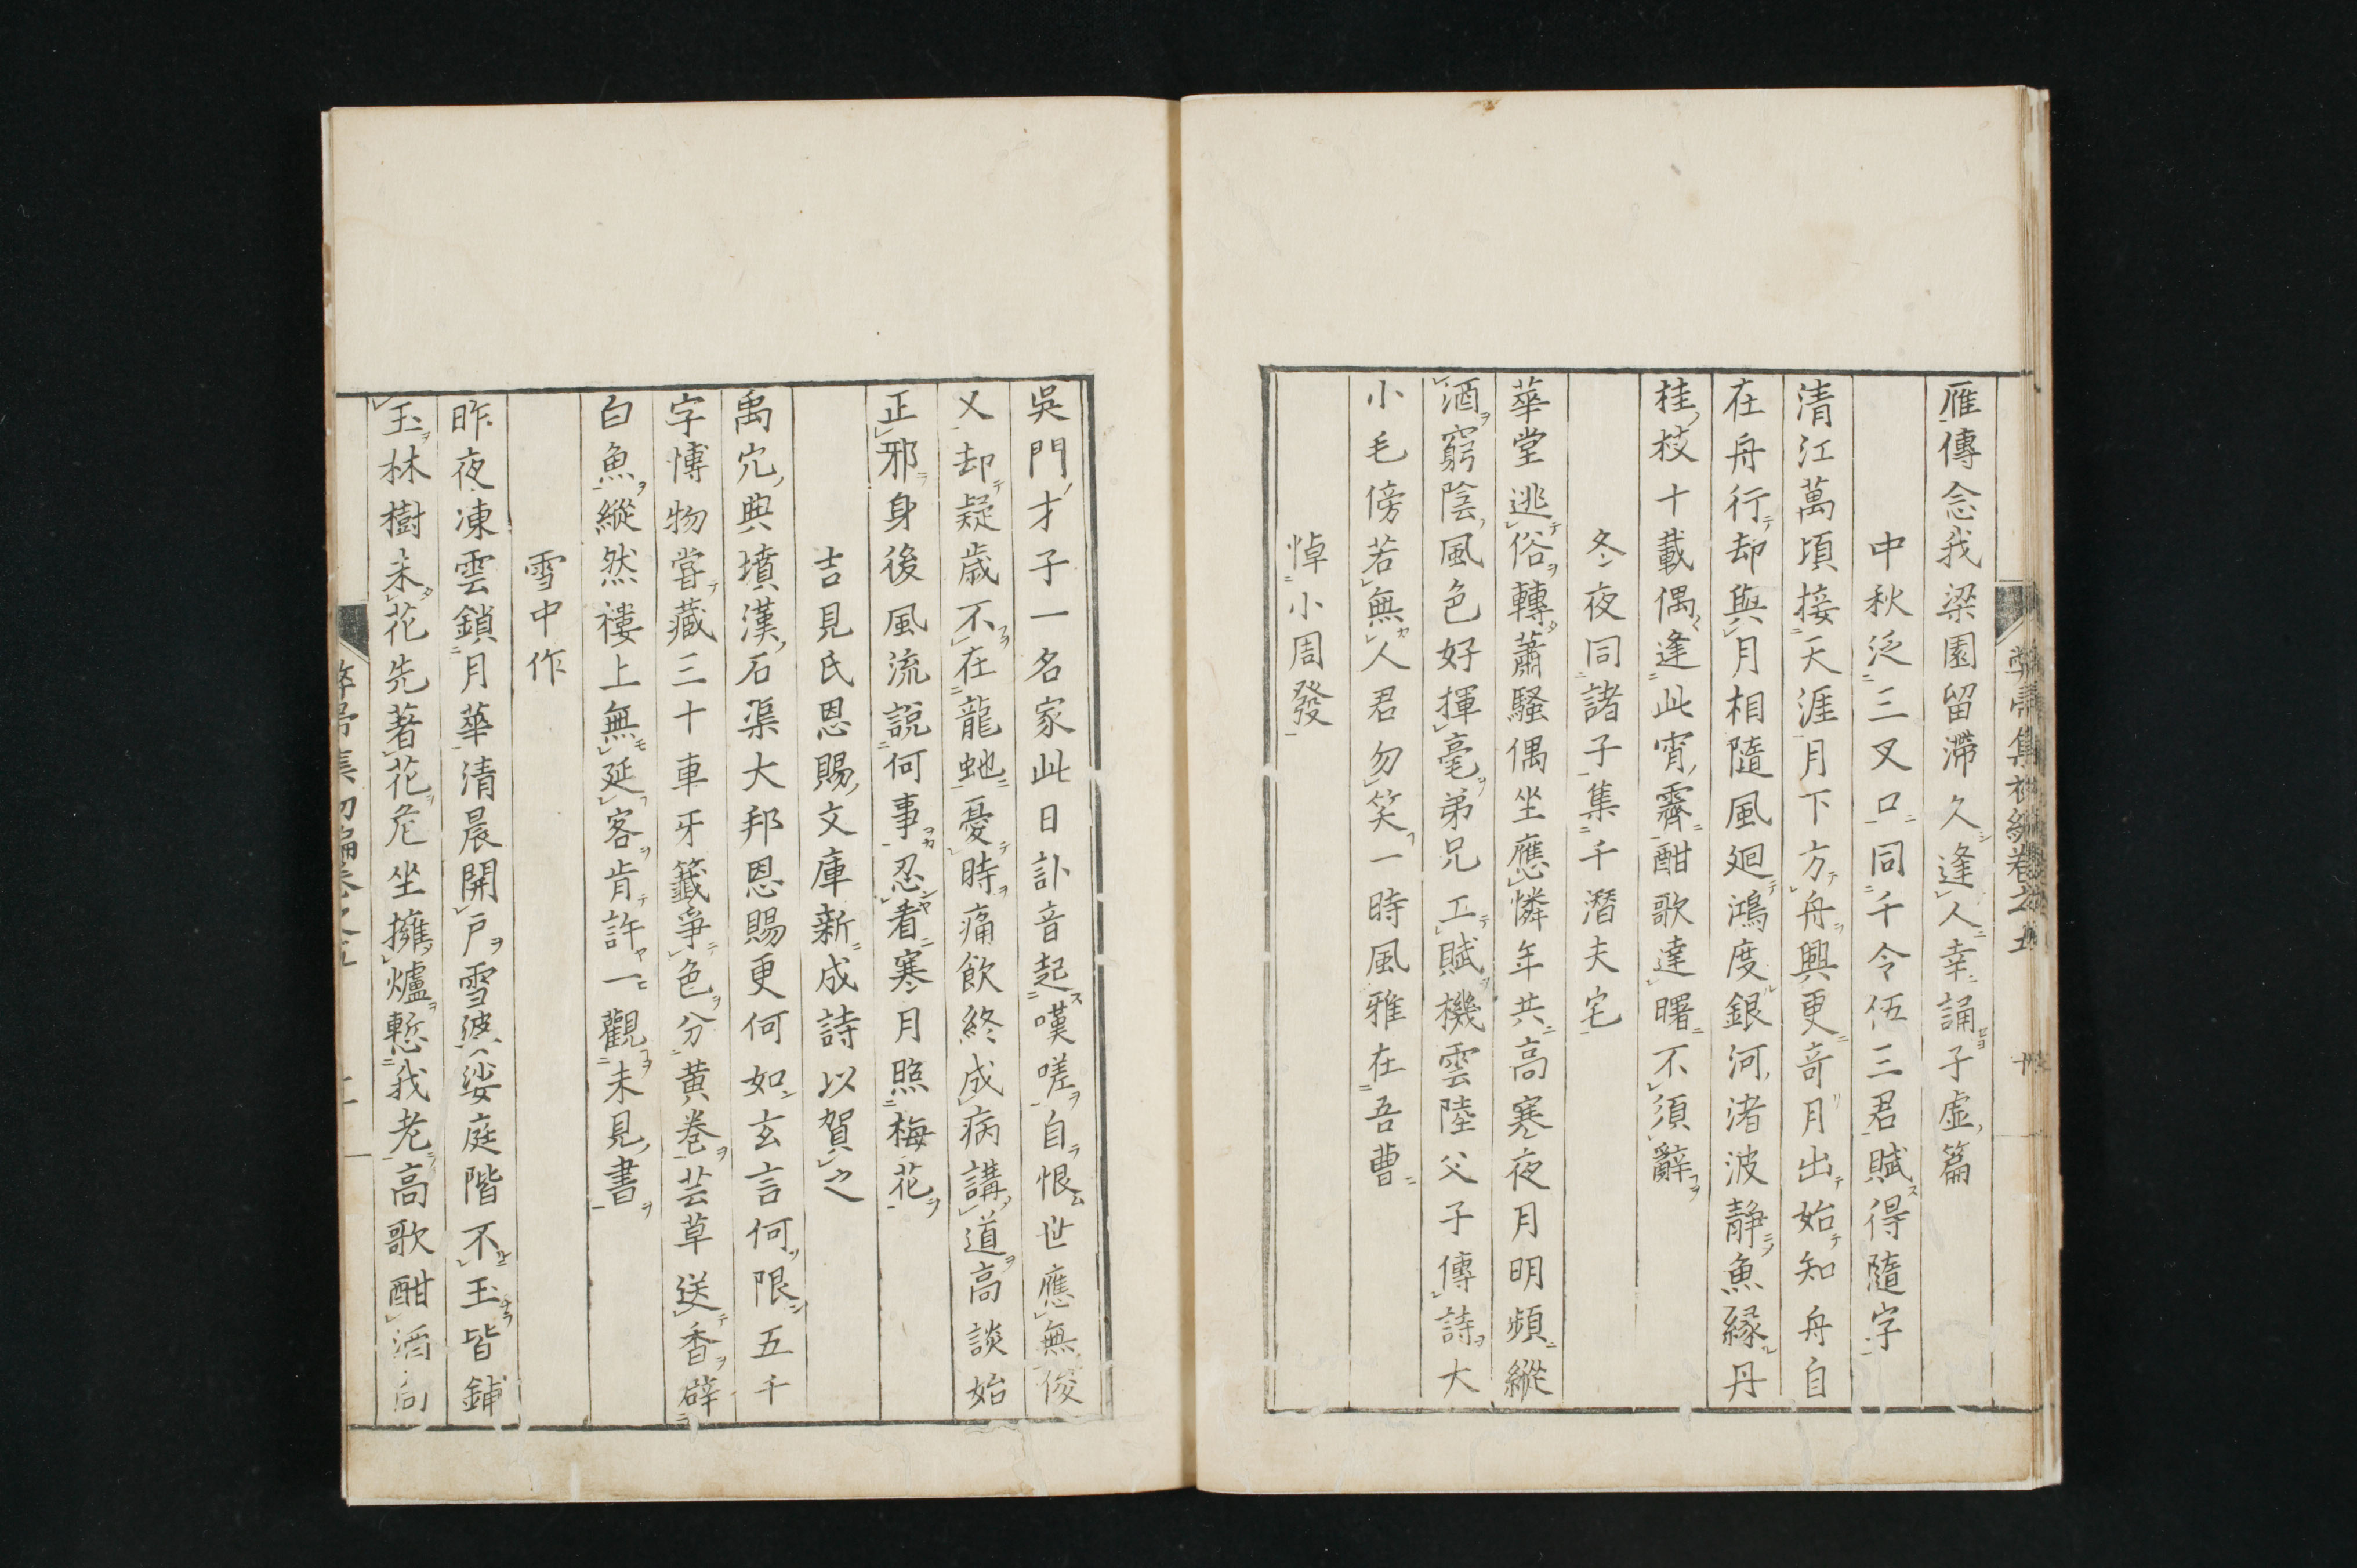 雁傳念我梁園留滯久逢人幸誦子虚篇
中秋泛三叉口同千令伍三君賦得隨字
清江萬頃接天涯月下方舟興更竒月出始知舟自
在舟行却與月相隨風廻鴻度銀河渚波静魚縁丹
桂枝十載偶逢此宵霽酣歌達曙不須辭
冬夜同諸子集千潛夫宅
華堂逃俗轉蕭騷偶坐應憐年共高寒夜月明頻縱
酒窮陰風色好揮毫弟兄工賦機雲陸父子傳詩大
小毛傍若無人君勿笑一時風雅在吾曹
悼小周發
吳門才子一名家此日訃音起嘆嗟自恨世應無俊
乂却疑歳不在龍虵憂時痛飲終成病講道高談始
正邪身後風流説何事忍看寒月照梅花
吉見氏恩賜文庫新成詩以賀之
禹穴典墳漢石渠大邦恩賜更何如玄言何限五千
字愽物嘗藏三十車牙籤爭色分黄巻芸草送香辟
白魚縱然樓上無延客肯許一觀未見書
雪中作
昨夜凍雲鎖月華清晨開戸雪婆娑庭階不玉皆鋪
玉林樹未花先著花危坐擁爐慙我老高歌酣酒